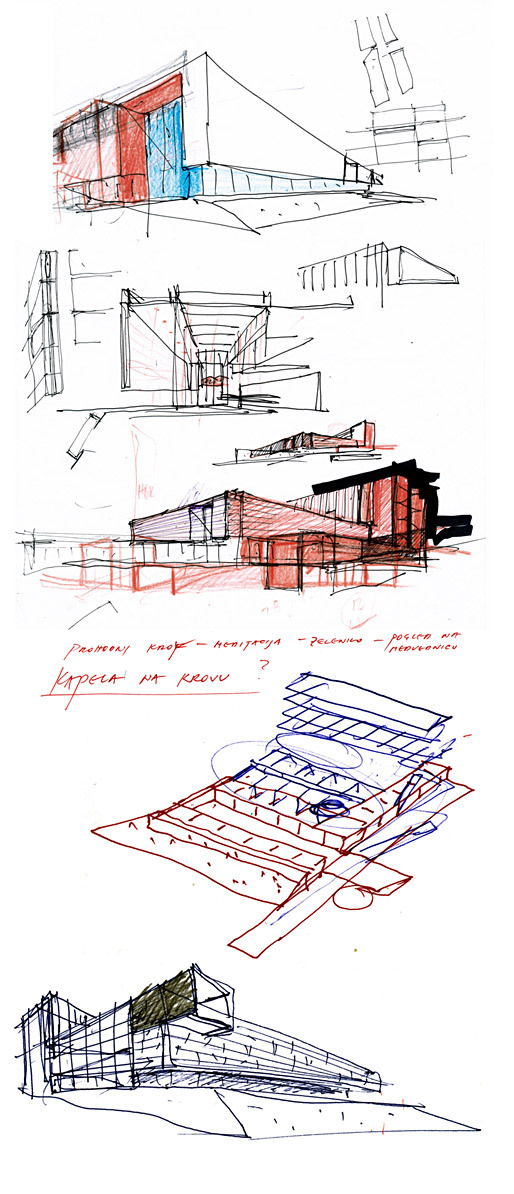 PROHODNI KROV – MEDITACIJA – ZELENILO – POGLED NA
MEDVEDNICU
KAPELA NA KROVU ?